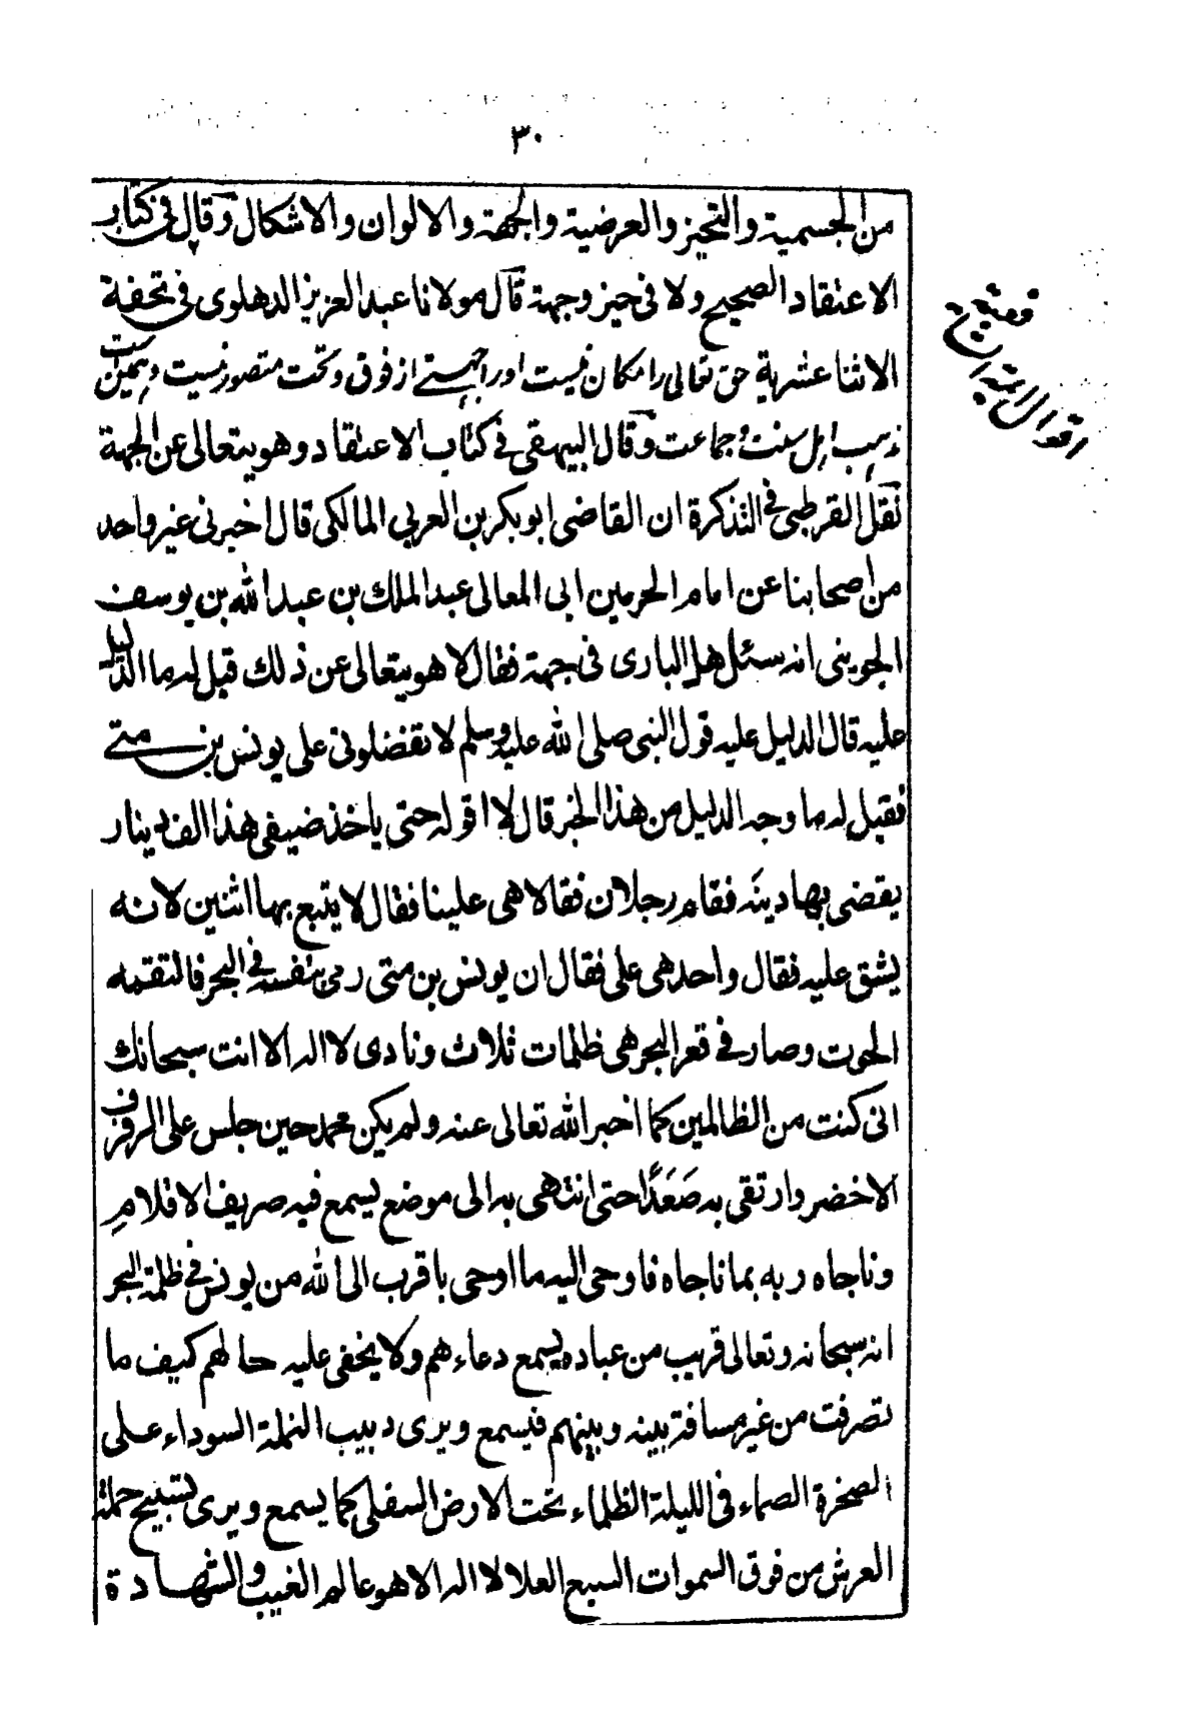 ٣٠
من الجسمية والتحيز والعرضية والجهة والالوان والاشكال وقال فى كتاب
الاعتقاد الصحيح ولا فى حيز وجهة قال مولانا عبد العزيز الدهلوى فى تحفة
الاثنا عشرية حق تعالى را مكان نيست اورا جهتے از فوق وتحت متصور نيست وہمین است
مذہب اہل سنت وجماعت وقال البيهقى فى كتاب الاعتقاد وهو يتعالى عن الجهة
نقل القرطبى فى التذكرة ان القاضى ابوبكر بن العربي المالكى قال اخبرنى غير واحد
من اصحابنا عن امام الحرمين ابى المعالى عبد الملك بن عبد الله بن يوسف
الجوينى انه سئل هل البارى فى جهة فقال لا هو يتعالى عن ذلك قيل له ما الدليل
عليه قال الدليل عليه قول النبى صلى الله عليه وسلم لا تفضلونى على يونس بن متے
فقيل له ما وجه الدليل من هذا الخبر قال لا اقوله حتى ياخذ ضيفى هذا الف دينار
يقضى بها دينَه فقام رجلان فقالا هى علينا فقال لا يتبع بها اثنين لانه
يشق عليه فقال واحد هى على فقال ان يونس بن متى رمى بنفسه فى البحر فالتقمه
الحوت وصار فى قعر البحر هى ظلمات ثلاث ونادى لا اله الا انت سبحانك
انى كنت من الظالمين كما اخبر الله تعالى عنه ولم يكن محمد حين جلس على الرفرف
الاخضر وارتقى به صَعَدًا حتى انتهى به الى موضع يسمع فيه صريف الاقلام
وناجاه ربه بما ناجاه فاوحى اليه ما اوحى باقرب الى الله من يونس فى ظلمة البحر
انه سبحانه وتعالى قريب من عباده يسمع دعاءهم ولا يخفى عليه حالهم كيف ما
تصرفت من غير مسافة بينه وبينهم فيسمع ويرى دبيب النملة السوداء على
الصخرة الصماء فى الليلة الظلماء تحت الارض السفلى كما يسمع ويرى تسبيح حملة
العرش من فوق السموات السبع العلا لا اله الا هو عالم الغيب والشهادة
اقوال ائمه